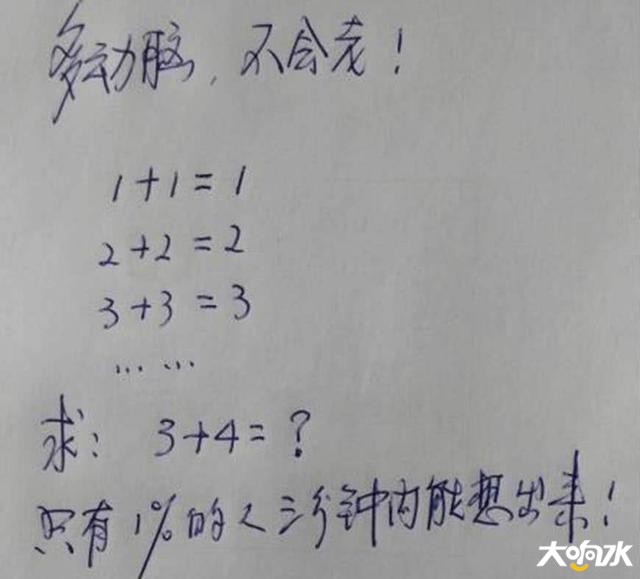 多动脑，不会老！
1+1=1
2+2=2
3+3=3
... ...
求：3+4=？
只有1%的人三分钟内能想出来！
大响水